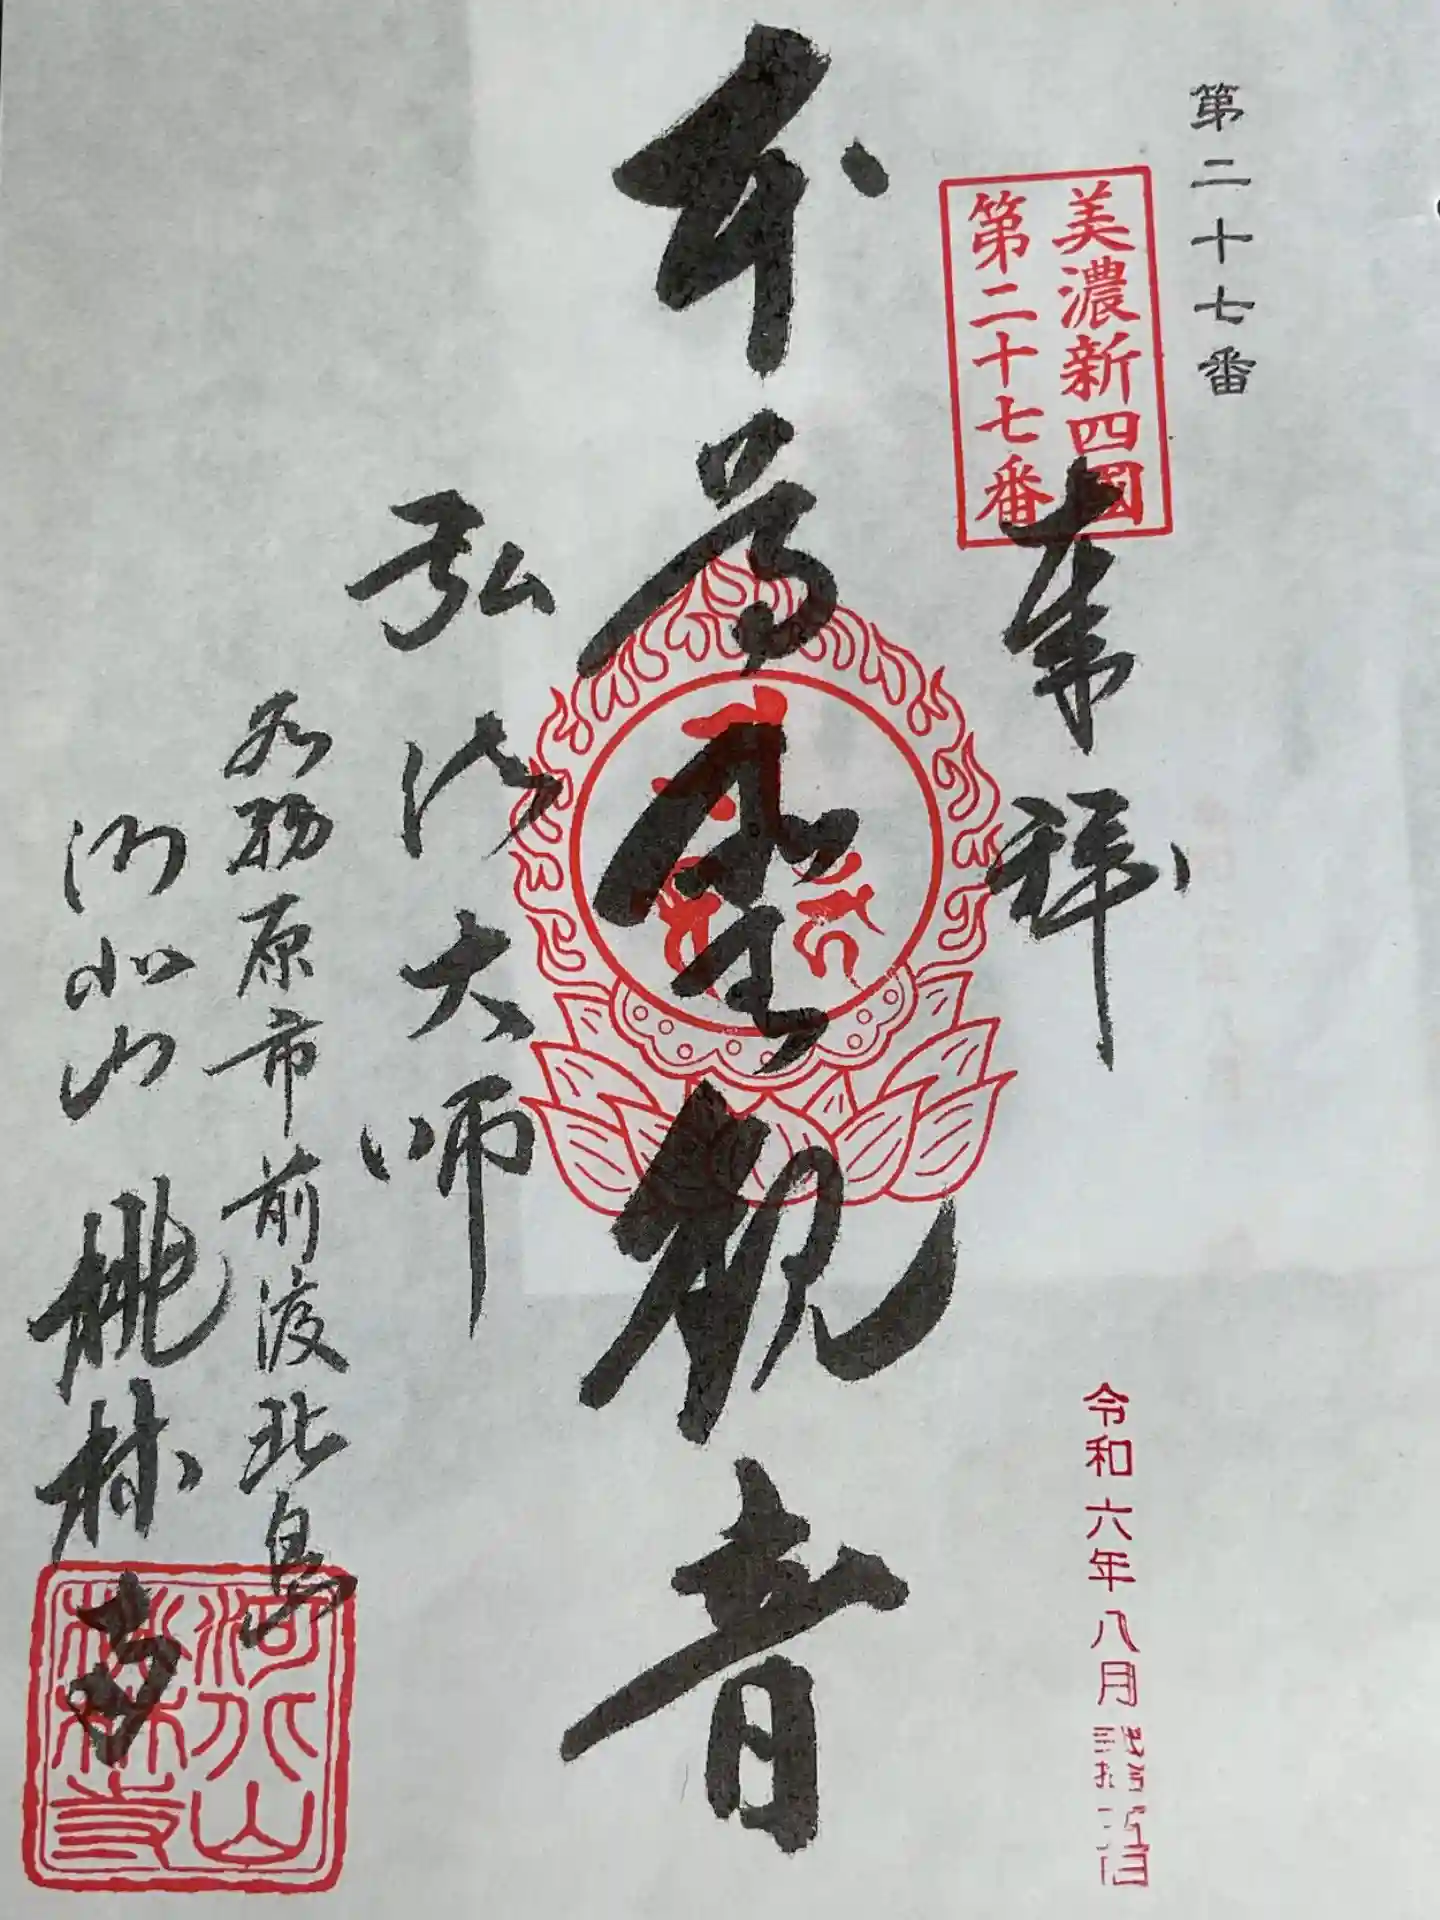 第二十七番
美濃新四國
第二十七番
奉拝
令和六年八月
本尊聖観音
弘法大師
各務原市前渡北島
河北山 桃林寺
河北山
桃林寺